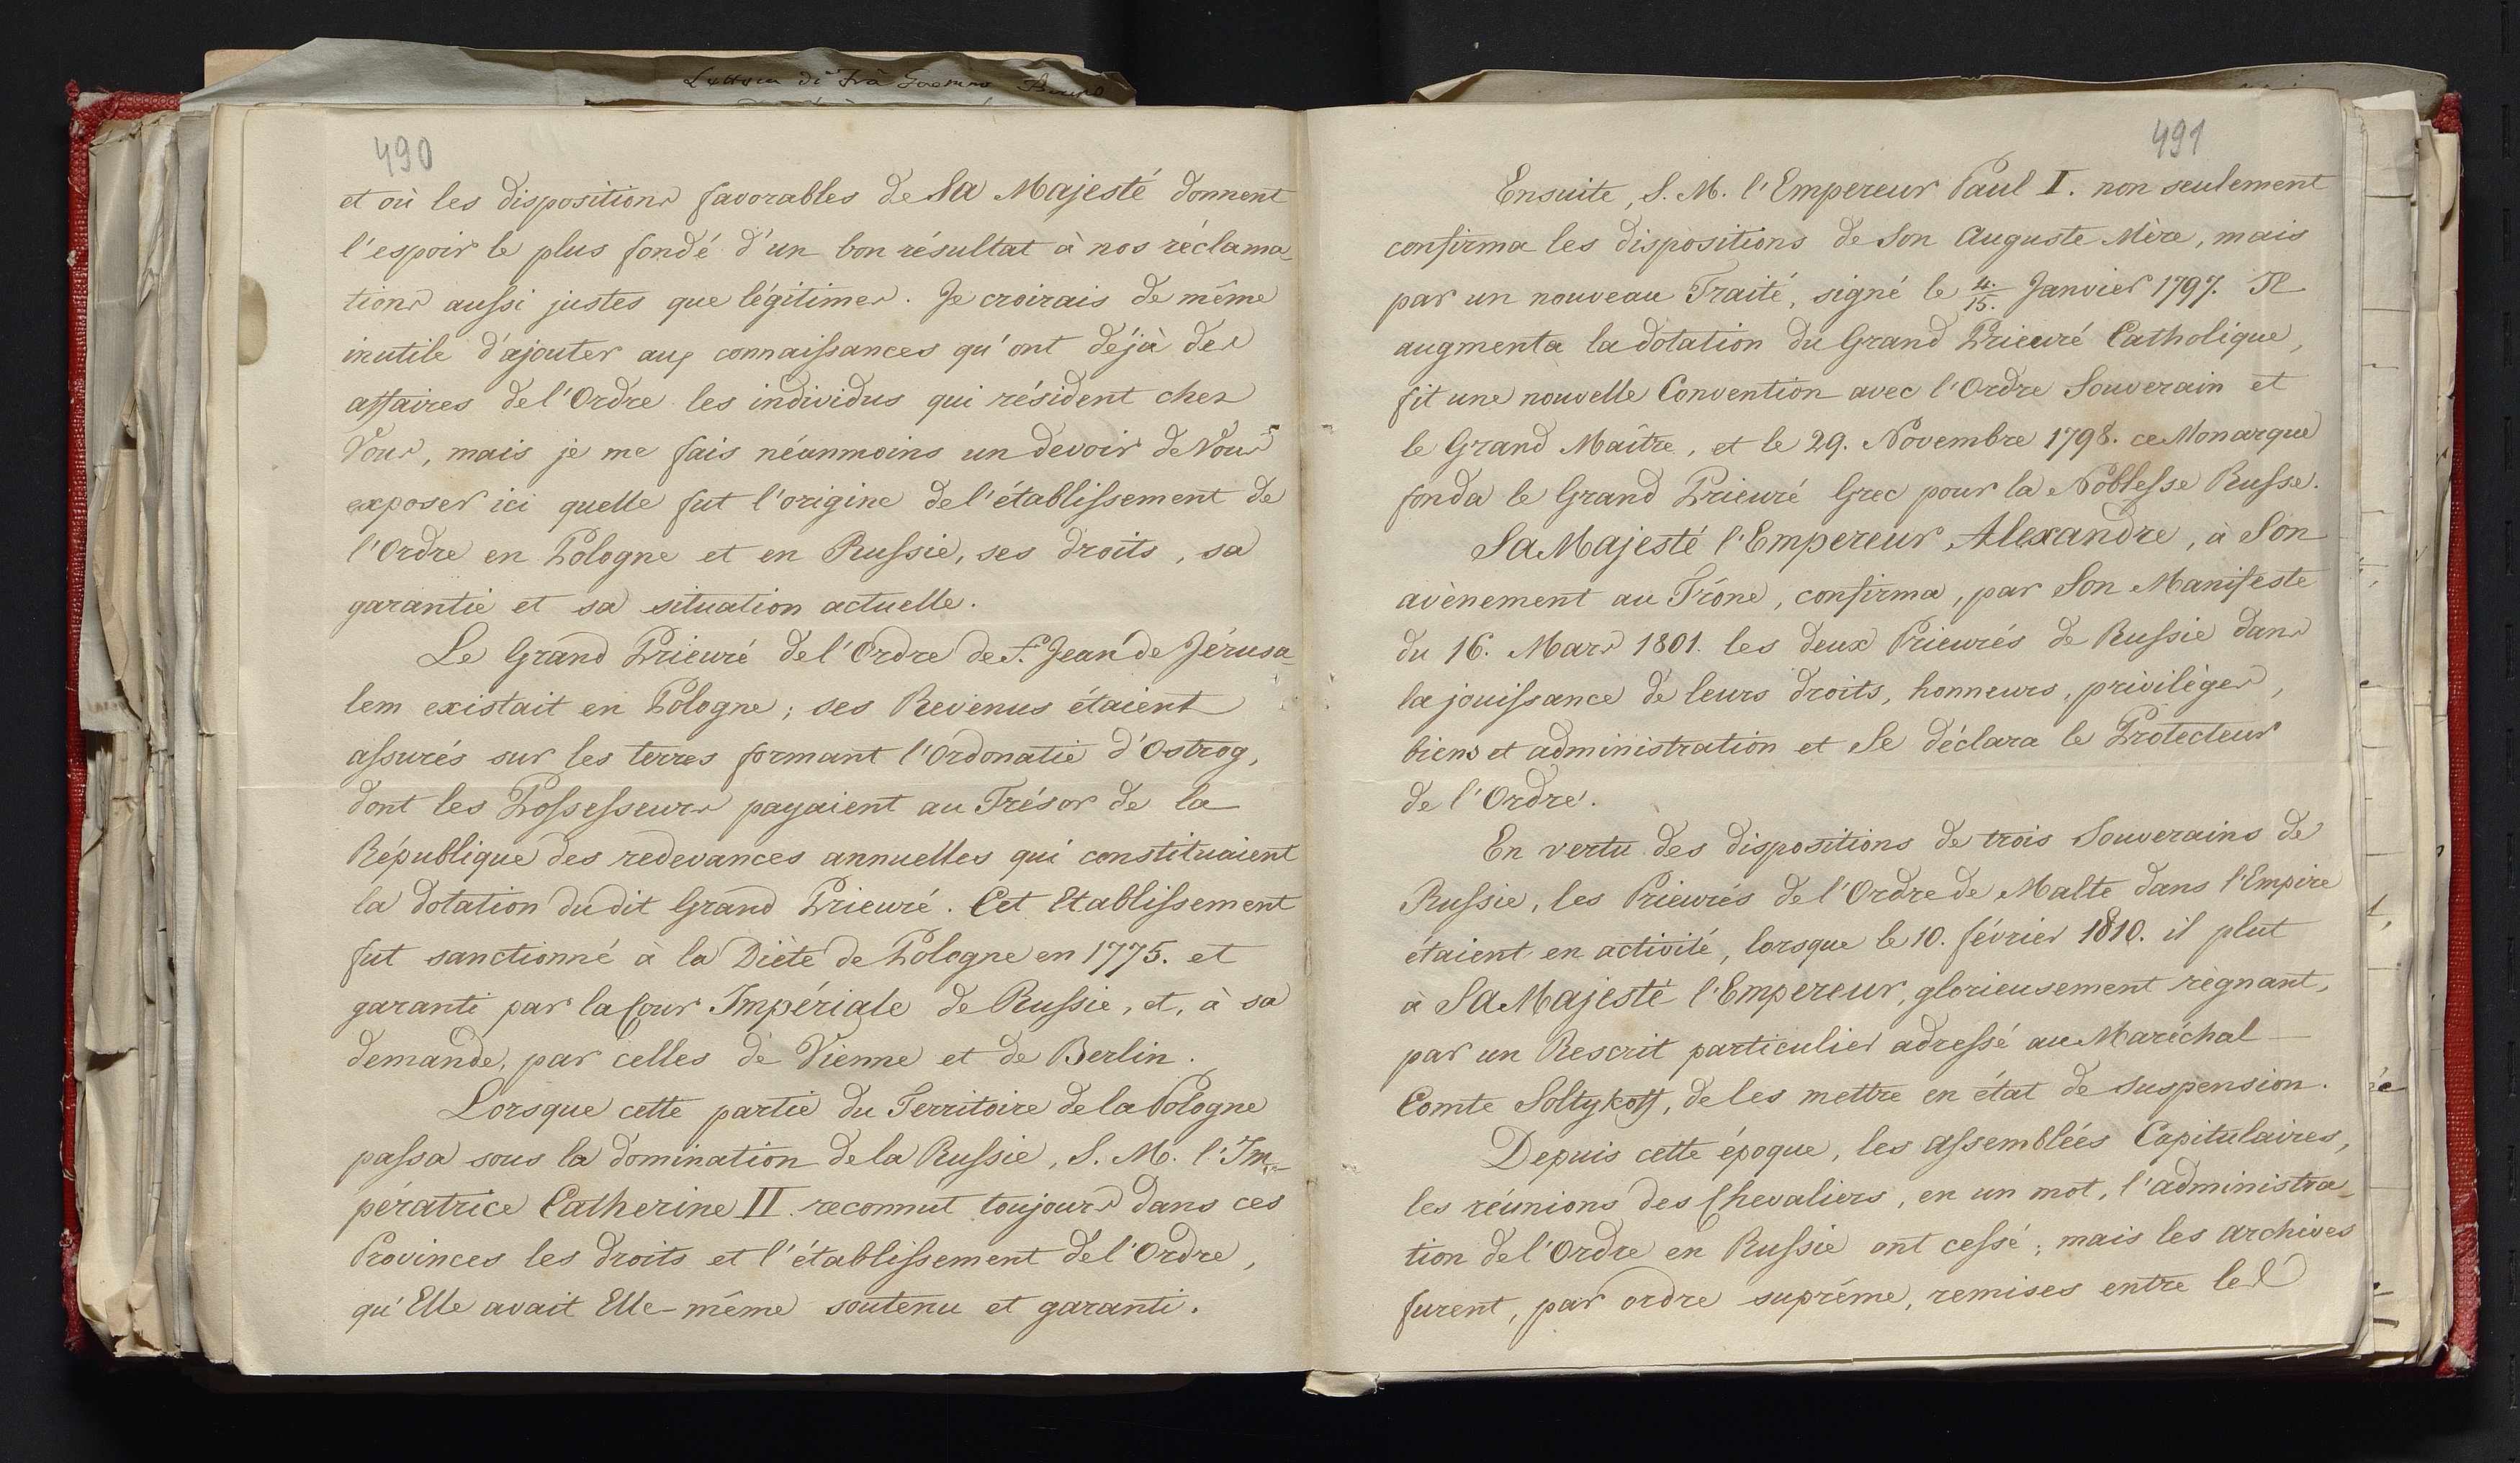 Lettera di Frà Gaetano Bruno
490
et où les dispositions favorables de Sa Majesté donnent
l'espoir le plus fondé d'un bon résultat à nos réclama_
tions aussi justes que légitimes. Je croirais de même
inutile d'ajouter aux connaissances qu'ont déjà des
affaires de l'Ordre les individus qui résident chez
Vous, mais je me fais néanmoins un devoir de Vous
exposer ici quelle fut l'origine de l'établissement de
l'Ordre en Pologne et en Russie, ses droits, sa
garantie et sa situation actuelle.
Le Grand Prieuré de l'Ordre de St. Jean de Jérusa_
lem existait en Pologne; ses Revenus étaient
assurés sur les terres formant l'Ordonatie d'Ostrog,
dont les Possesseurs payaient au Trésor de la
République des redevances annuelles qui constituaient
la dotation du dit Grand Prieuré. Cet Etablissement
fut sanctionné à la Diète de Pologne en 1775. et
garanti par la Cour Impériale de Russie, et, à sa
demande, par celles de Vienne et de Berlin.
Lorsque cette partie du Territoire de la Pologne
passa sous la domination de la Russie, S. M. l'Im_
pératrice Catherine II. reconnut toujours dans ces
Provinces les droits et l'établissement de l'Ordre,
qu'Elle avait Elle-même soutenu et garanti.
491
Ensuite, S. M. l'Empereur Paul I. non seulement
confirma les dispositions de Son Auguste Mère, mais
par un nouveau Traité, signé le 4./15. Janvier 1797. Il
augmenta la dotation du Grand Prieuré Catholique,
fit une nouvelle Convention avec l'Ordre Souverain et
le Grand Maître, et le 29. Novembre 1798. ce Monarque
fonda le Grand Prieuré Grec pour la Noblesse Russe.
Sa Majesté l'Empereur Alexandre, à Son
avènement au Trône, confirma, par Son Manifeste
du 16. Mars 1801. les deux Prieurés de Russie dans
la jouissance de leurs droits, honneurs, privilèges,
biens et administration et Se déclara le Protecteur
de l'Ordre.
En vertu des dispositions de trois Souverains de
Russie, les Prieurés de l'Ordre de Malte dans l'Empire
étaient en activité, lorsque le 10. février 1810. il plut
à Sa Majesté l'Empereur, glorieusement règnant,
par un Rescrit particulier adressé au Maréchal
Comte Soltykoff, de les mettre en état de suspension.
Depuis cette époque, les assemblées Capitulaires,
les réunions des Chevaliers, en un mot, l'administra_
tion de l'Ordre en Russie ont cessé; mais les archives
furent, par ordre suprême, remises entre les